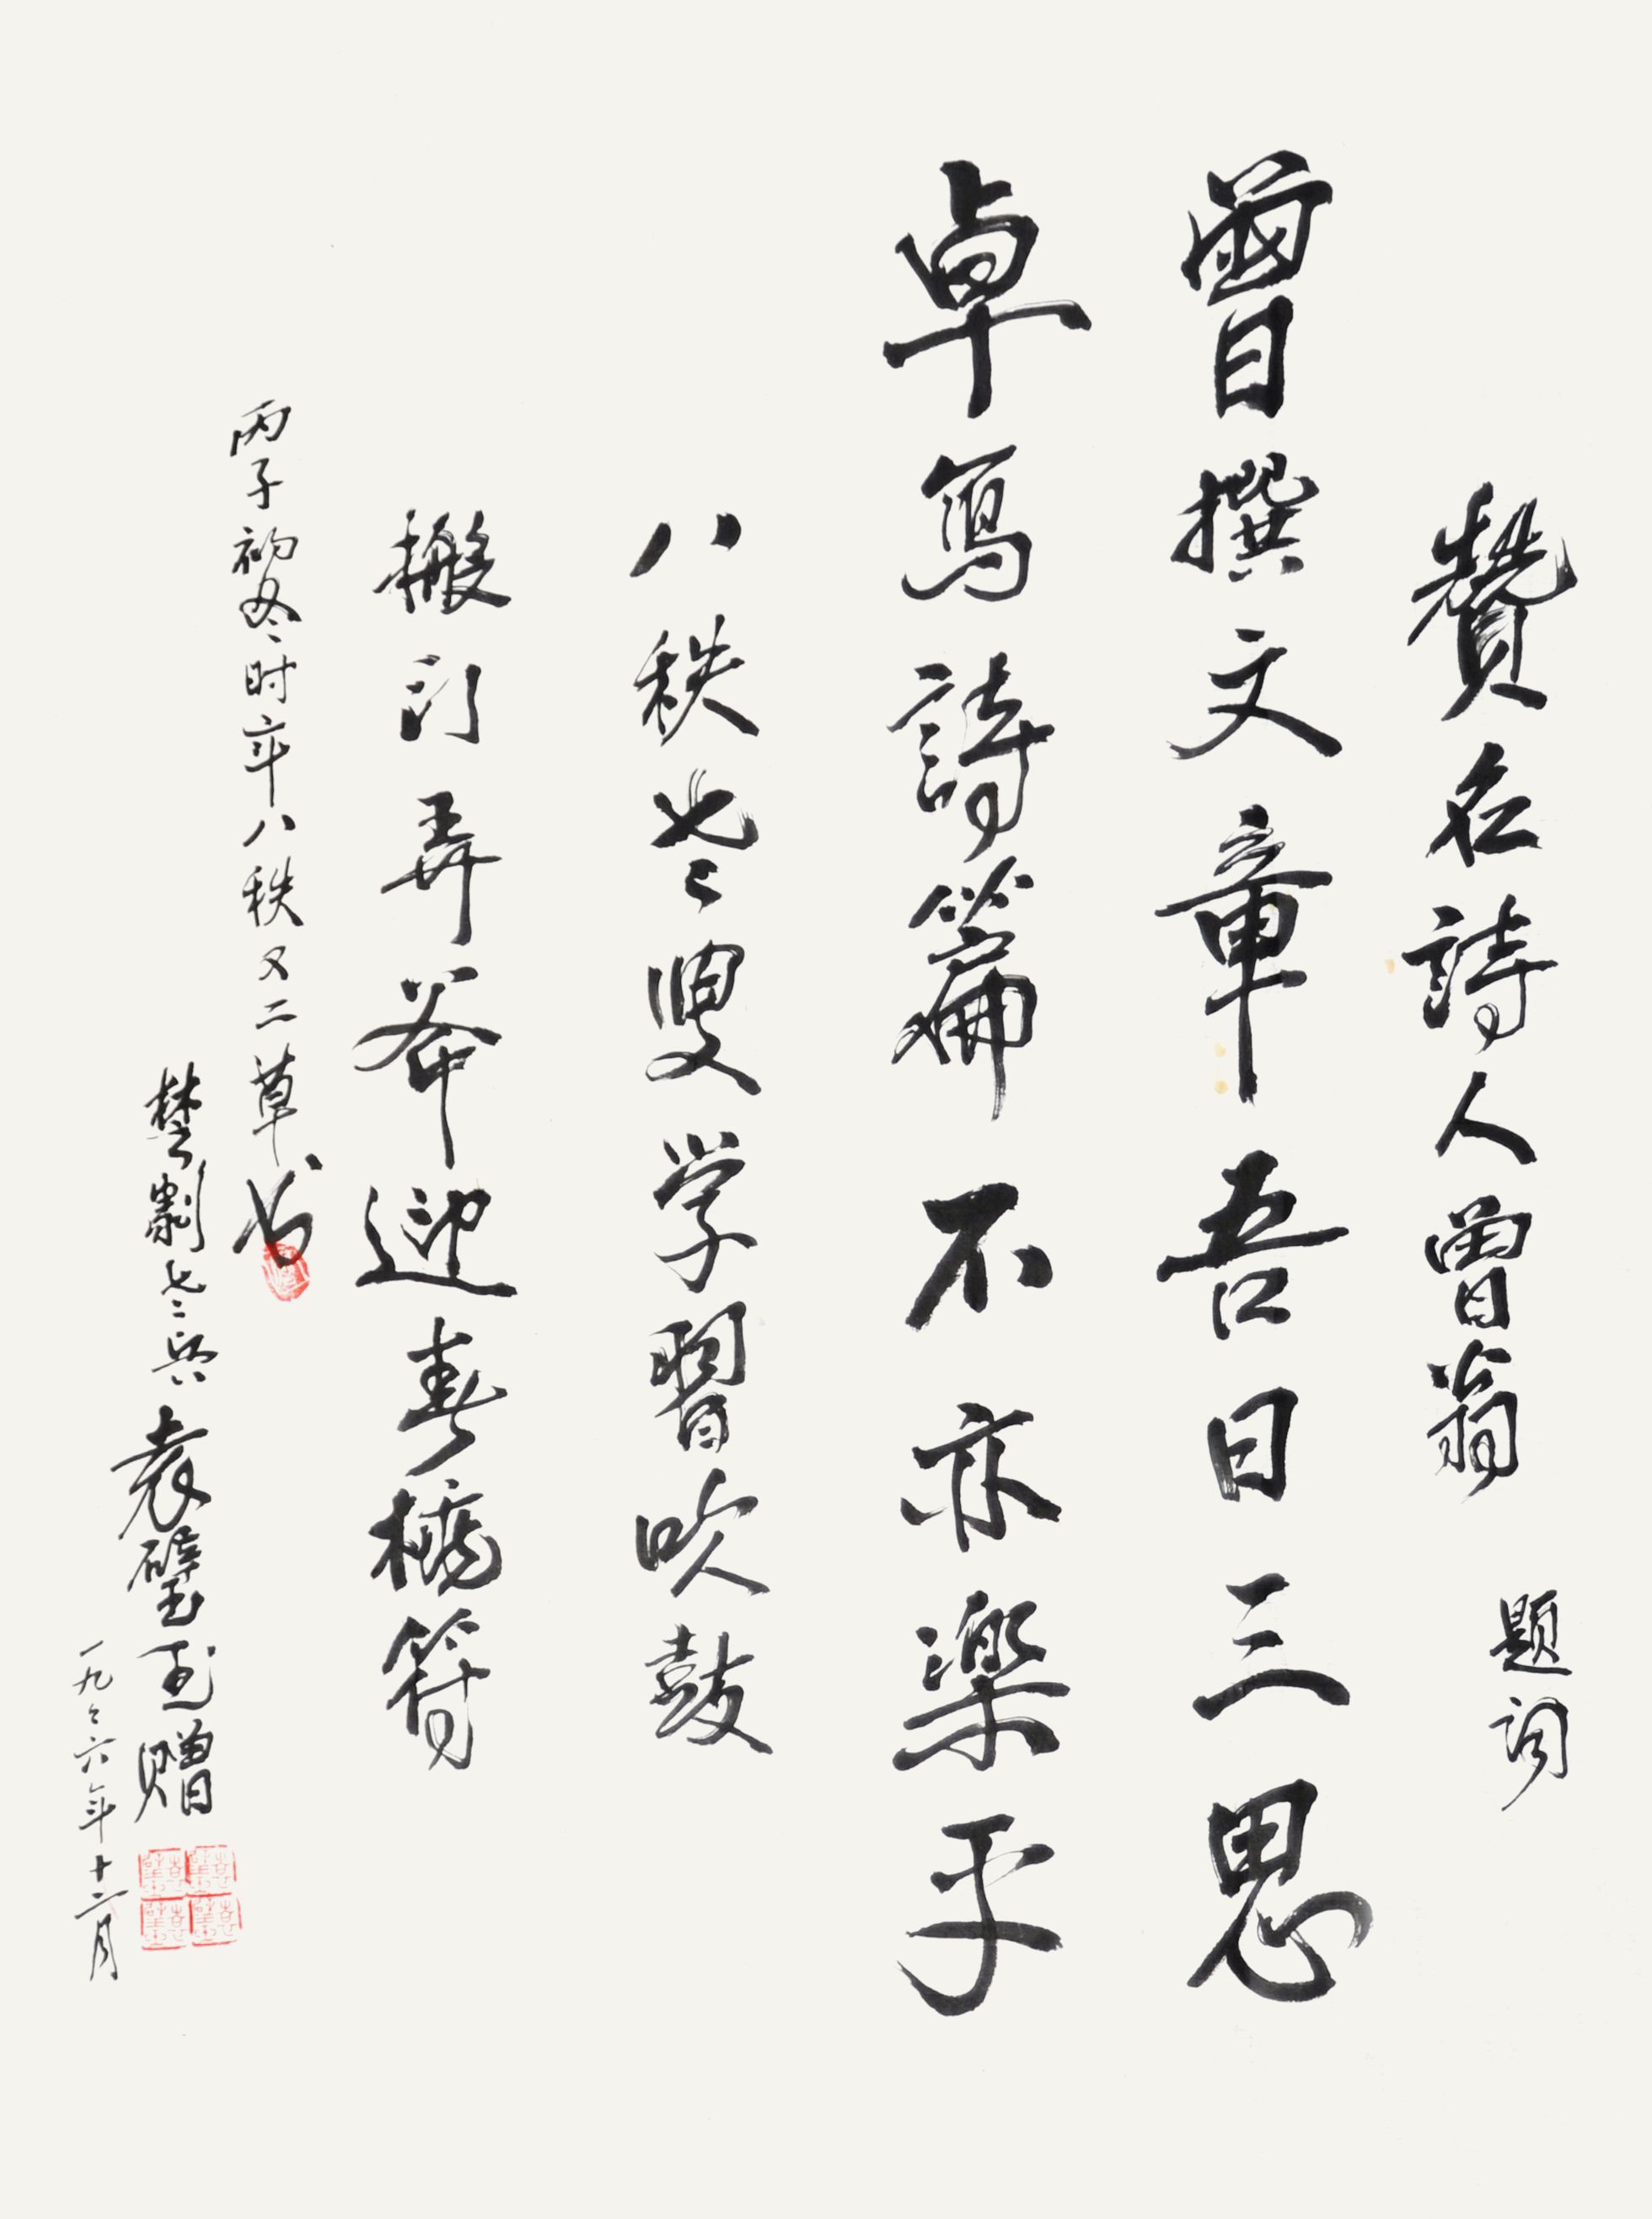 贊名詩人曾翁 题词
曾撰文章吾日三思
卓寫詩篇不亦樂乎
八秩老叟学習吹鼓
搬门弄斧迎春桃符
丙子初冬时年八秩又二草书
楚劇老兵袁璧玉赠
一九九六年十二月